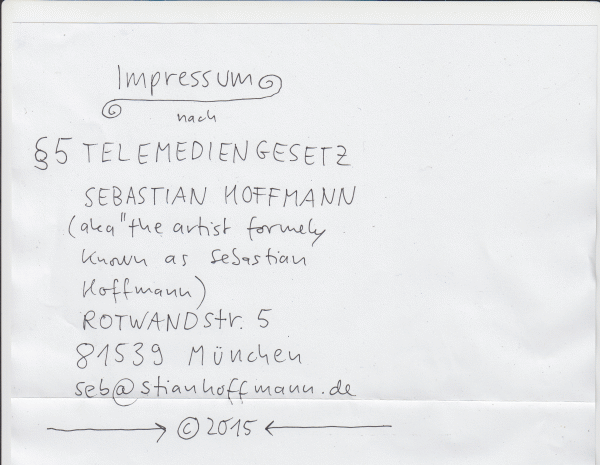 Impressum
nach
§5 TELEMEDIENGESETZ
SEBASTIAN HOFFMANN
(aka "the artist formely
known as Sebastian
Hoffmann)
ROTWANDstr. 5
81539 München
seb@stianhoffmann.de
→ © 2015 ←